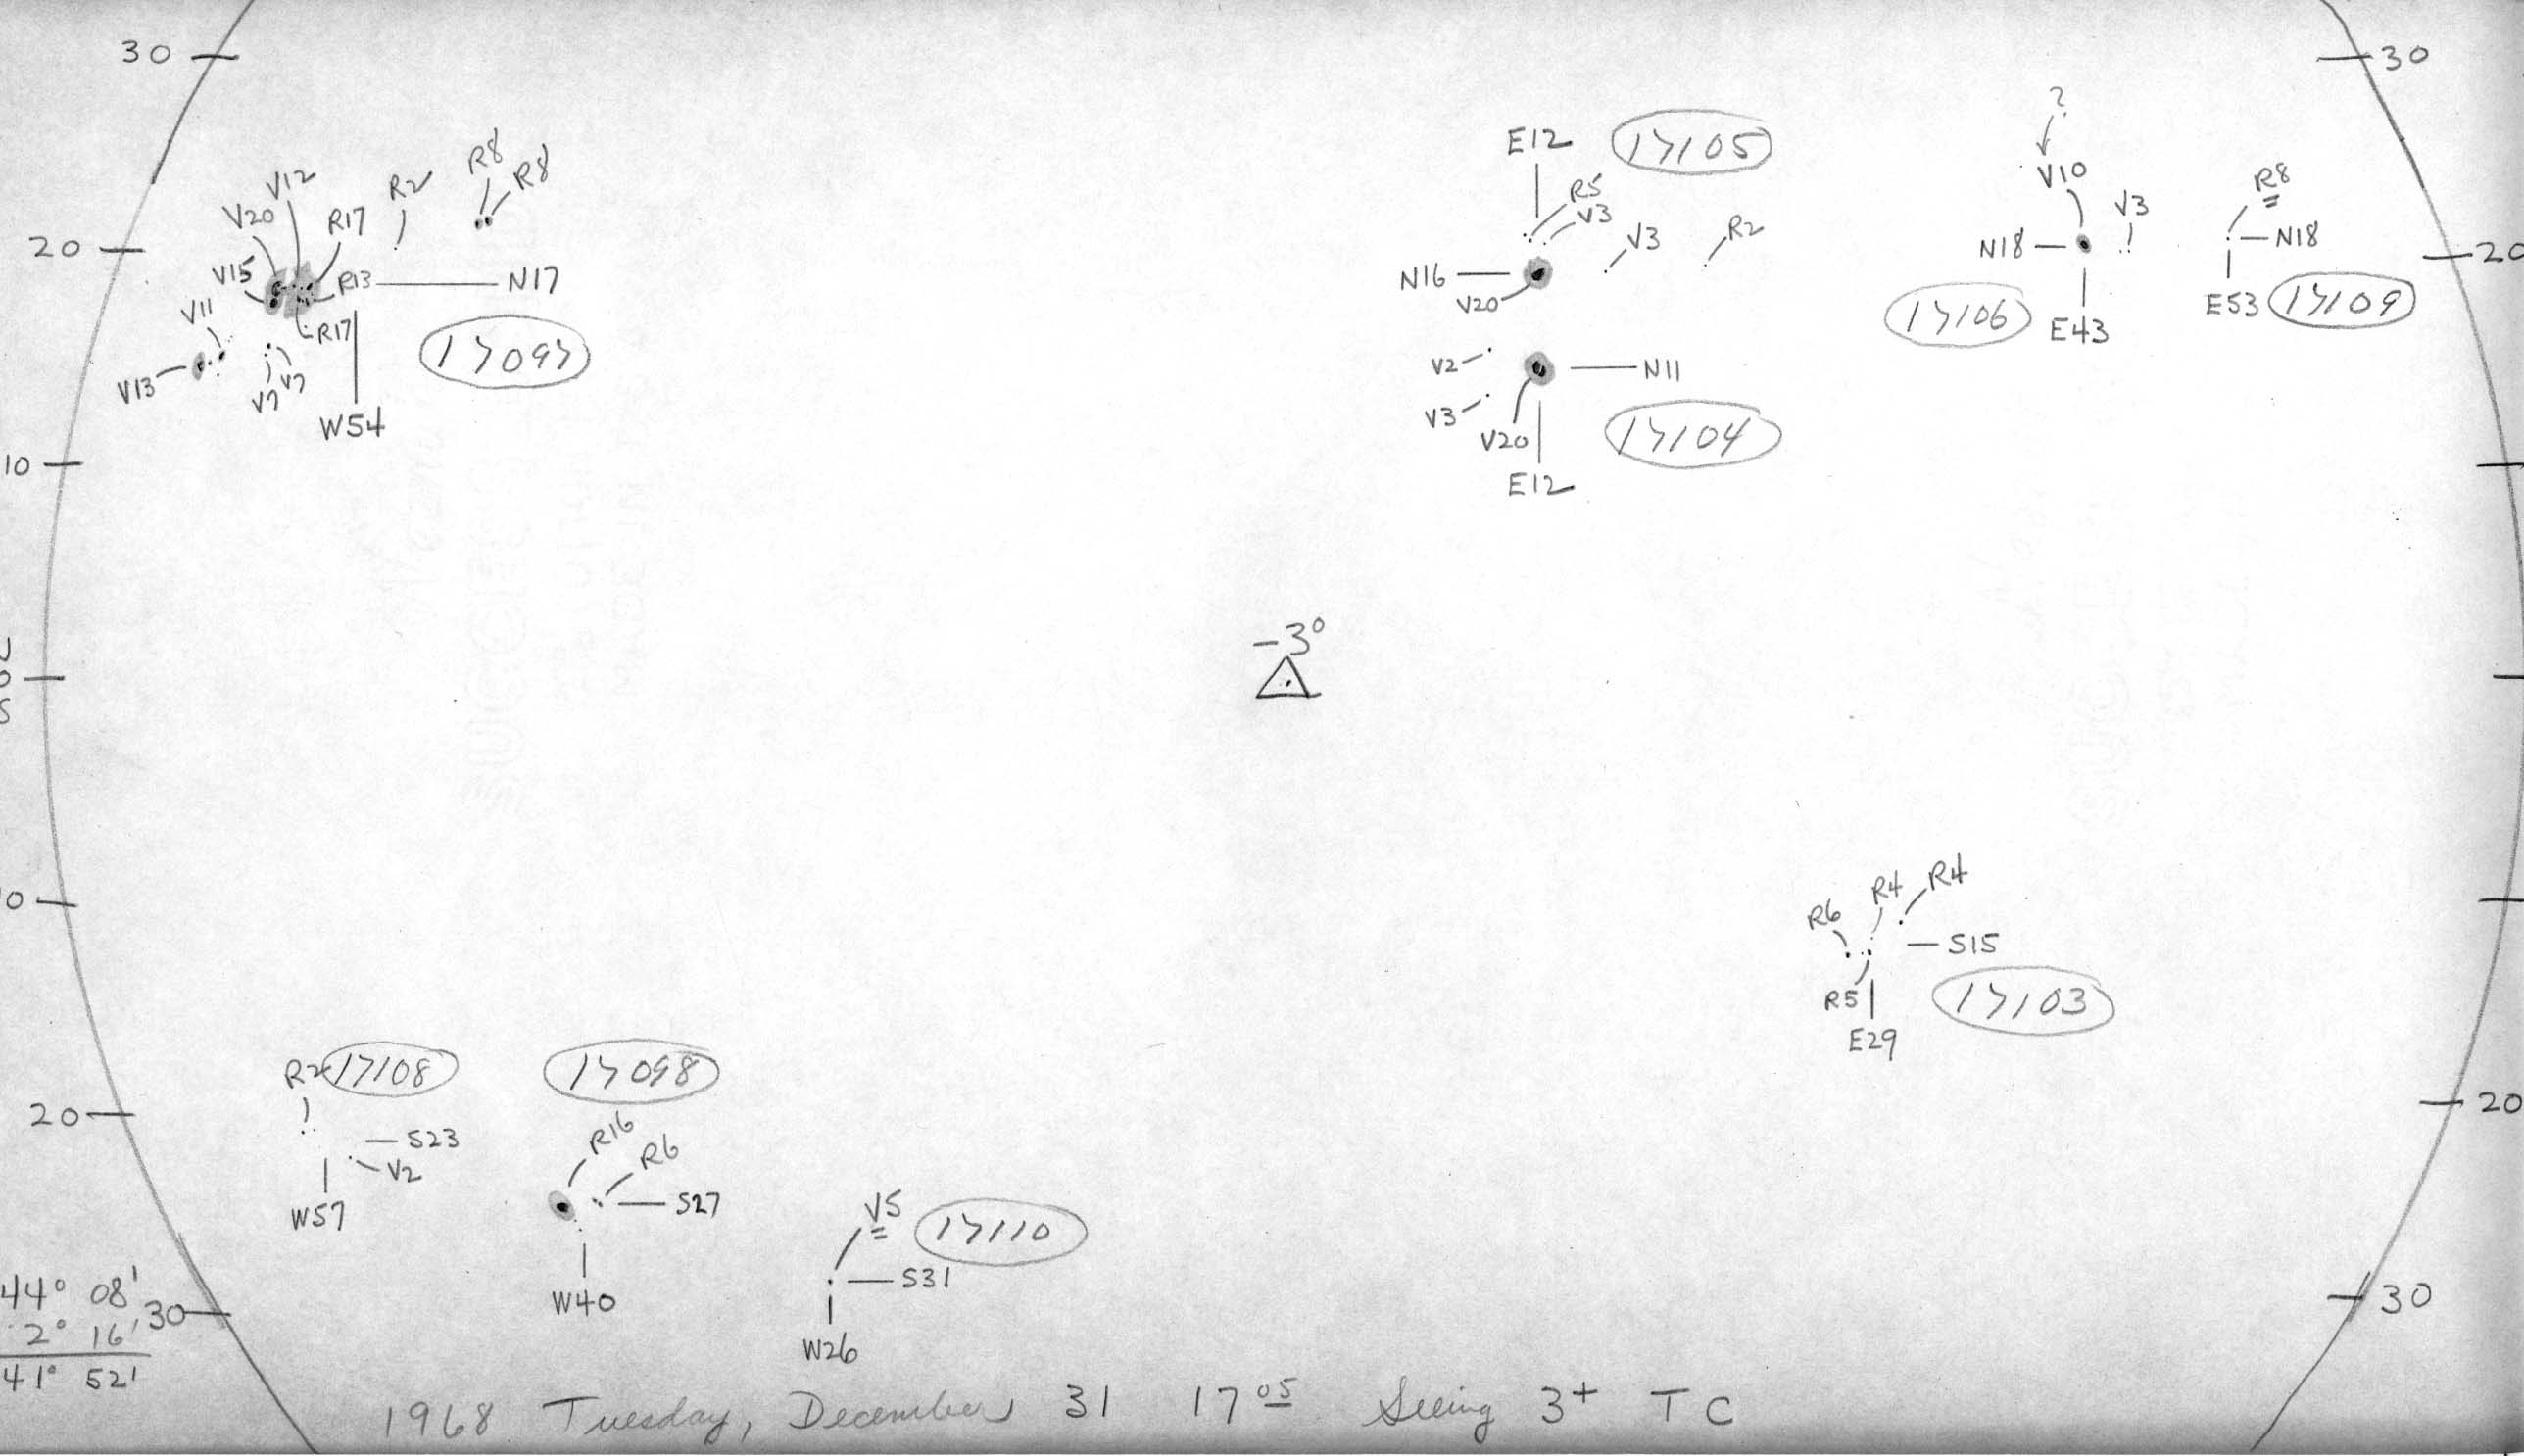 30
30
?
E12
17105
V10
R8
R8
R8
V12
R2
R5
V3
V3
V20
R17
V3
R2
20
N18
N18
20
V15
R13
N17
N16
V20
E53
17109
V11
R17
17097
17106
E43
V13
V7
V7
V2
N11
W54
V3
V20
17104
10
E12
-3°
N
0
S
R4
R4
R6
S15
10
R5
17103
E29
R2
17108
17098
20
20
R16
S23
V2
R6
W57
S27
V5
17110
W40
S31
W26
44° 08'
30
30
2° 16'
41° 52'
1968 Tuesday, December 31 17 05 Seeing 3+ TC